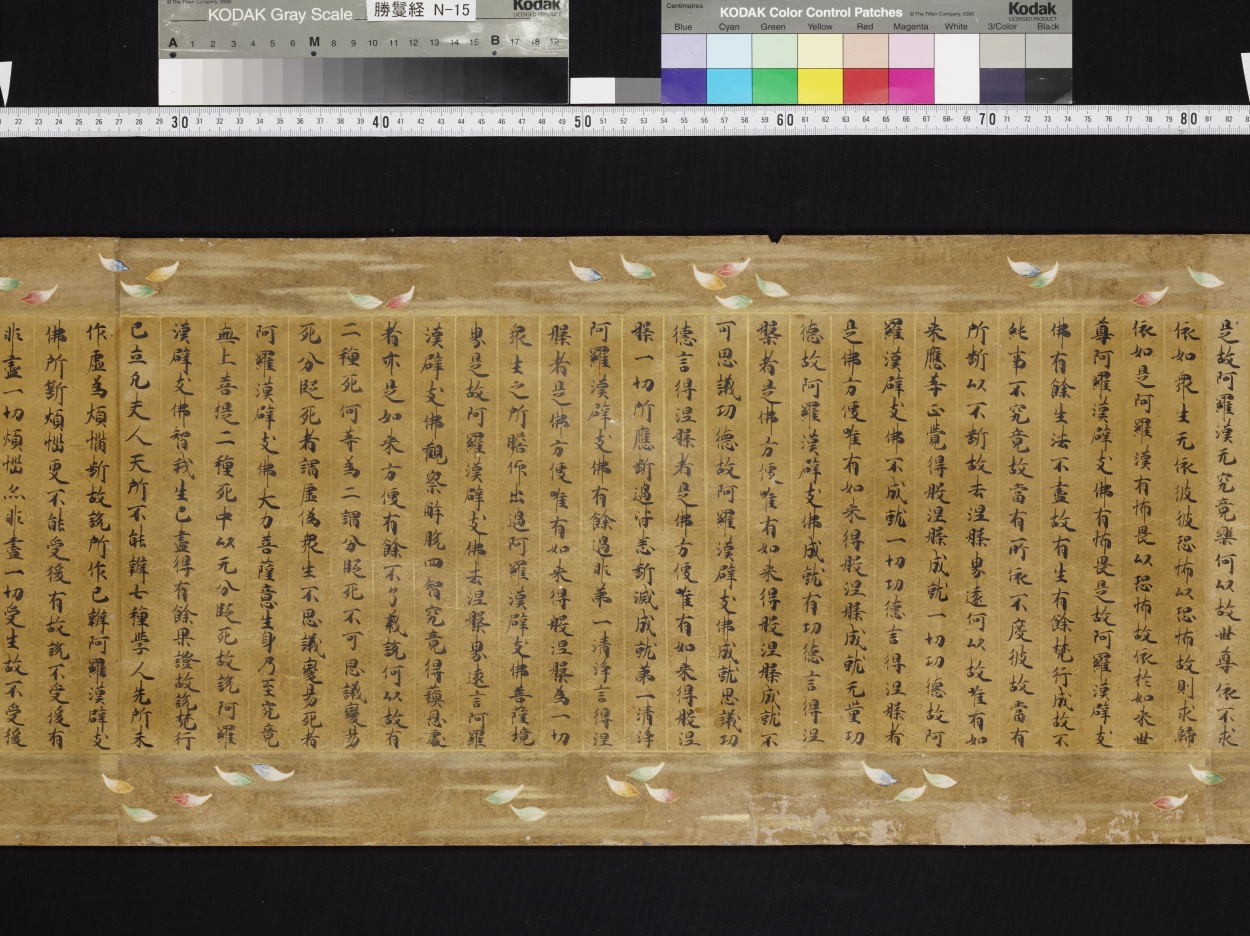 KODAK Gray Scale
Kodak
LICENSED PRODUCT
© The Tiffen Company, 2000
A 1 2 3 4 5 6 M 8 9 10 11 12 13 14 15 B 17 18 19
勝鬘経 N-15
Centimetres
KODAK Color Control Patches
© The Tiffen Company, 2000
Kodak
LICENSED PRODUCT
Blue Cyan Green Yellow Red Magenta White 3/Color Black
22 23 24 25 26 27 28 29 30 31 32 33 34 35 36 37 38 39 40 41 42 43 44 45 46 47 48 49 50 51 52 53 54 55 56 57 58 59 60 61 62 63 64 65 66 67 68 69 70 71 72 73 74 75 76 77 78 79 80 81 82
是故阿羅漢无究竟樂何以故世尊依不求
依如衆生无依彼彼恐怖以恐怖故則求歸
依如是阿羅漢有怖畏以恐怖故依於如來世
尊阿羅漢辟支佛有怖畏是故阿羅漢辟支
佛有餘生法不盡故有生有餘梵行成故不
純事不究竟故當有所依不度彼故當有
所斷以不斷故去涅槃界遠何以故唯有如
來應等正覺得般涅槃成就一切功德故阿
羅漢辟支佛不成就一切功德言得涅槃者
是佛方便唯有如來得般涅槃成就无量功
德故阿羅漢辟支佛成就有功德言得涅
槃者是佛方便唯有如來得般涅槃成就不
可思議功德故阿羅漢辟支佛成就思議功
德言得涅槃者是佛方便唯有如來得般涅
槃一切所應斷過皆悉斷滅成就第一清淨
阿羅漢辟支佛有餘過非第一清淨言得涅
槃者是佛方便唯有如來得般涅槃為一切
衆生之所瞻仰出過阿羅漢辟支佛菩薩境
界是故阿羅漢辟支佛去涅槃界遠言阿羅
漢辟支佛觀察解脫四智究竟得蘇息處
者亦是如來方便有餘不了義說何以故有
二種死何等為二謂分段死不可思議變易
死分段死者謂虛偽衆生不思議變易死者
阿羅漢辟支佛大力菩薩意生身乃至究竟
無上菩提二種死中以无分段死故說阿羅
漢辟支佛智我生已盡得有餘果證故說梵行
已立凡夫人天所不能辦七種學人先所未
作虛為煩惱斷故說所作已辦阿羅漢辟支
佛所斷煩惱更不能受後有故說不受後有
非盡一切煩惱亦非盡一切受生故不受後